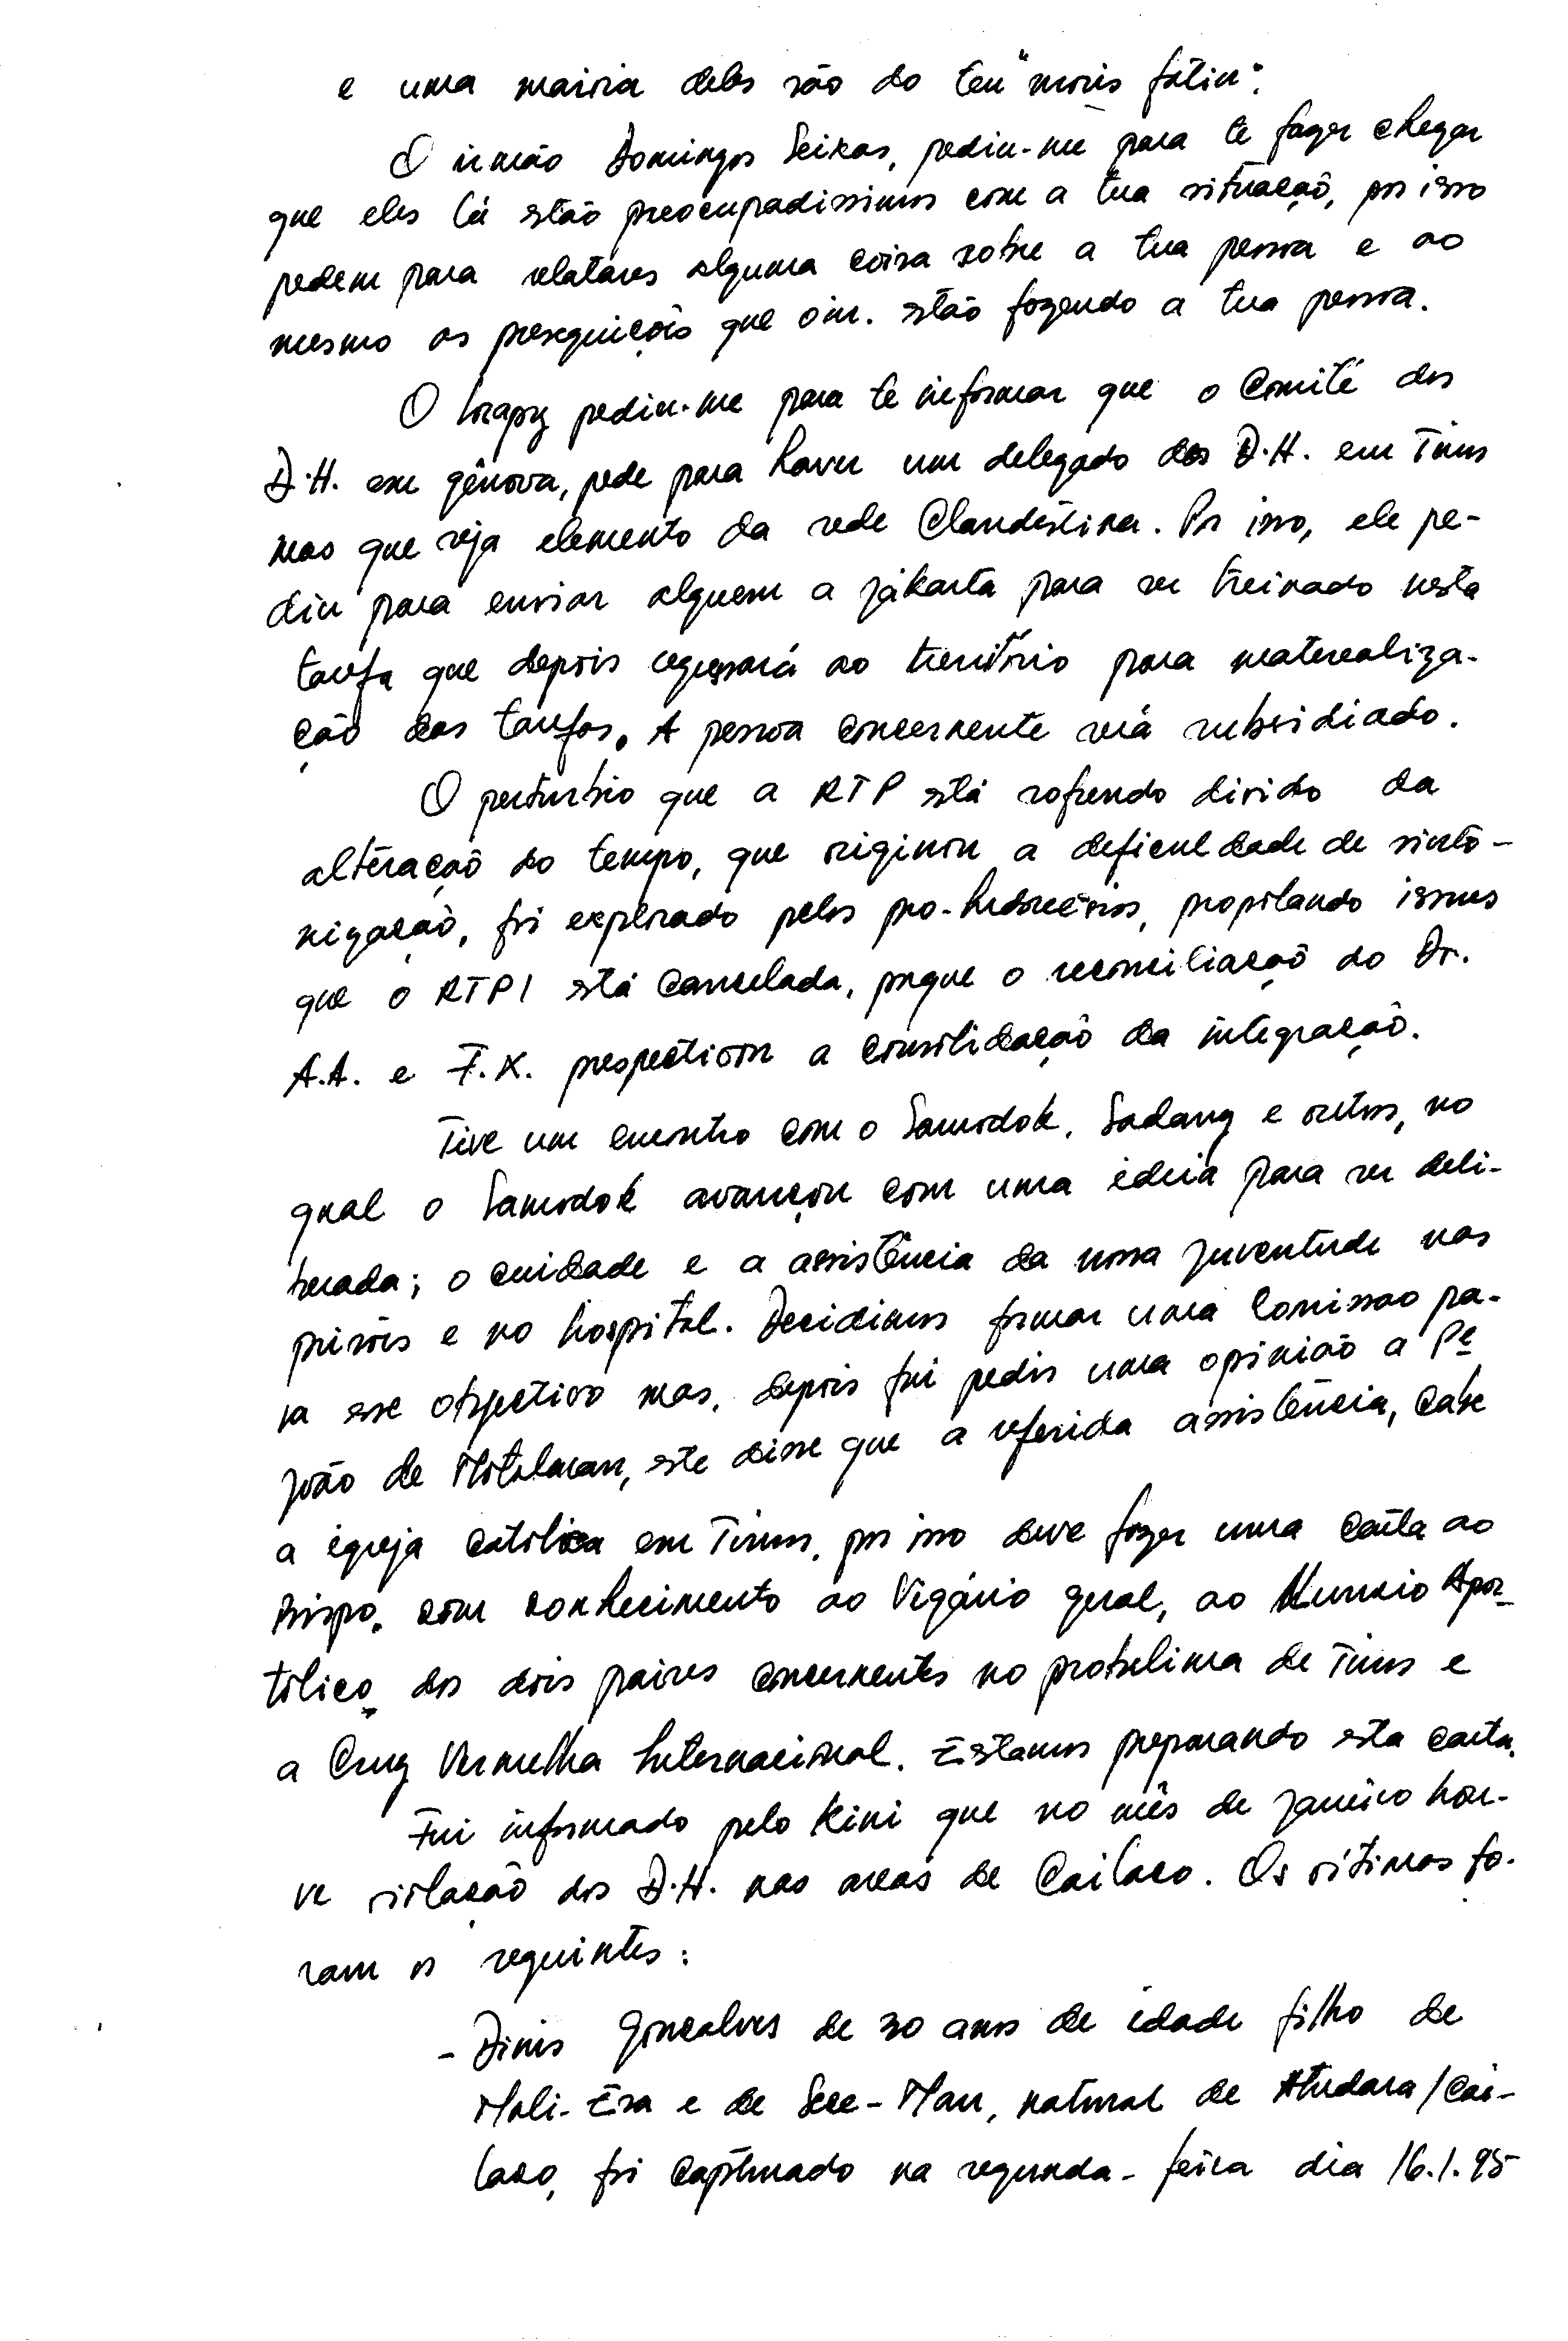 e uma maioria deles são do teu "moris fatin".
O irmão Domingos Seixas, pediu-me para te fazer chegar
que eles lá estão preocupadissimos com a tua situação, por isso
pedem para relatares alguma coisa sobre a tua pessoa e ao
mesmo as preseguições que o in. estão fazendo a tua pessoa.
O pediu-me para te informar que o Comité dos
D.H. em gênova, pede para haver um delegado dos D.H. em Timor
mas que seja elemento da rede Clandestina. Por isso, ele pe-
diu para enviar alguem a jakarta para ser treinado nesta
tarefa que depois regressará ao território para materealiza-
ção das tarefas. A pessoa concernente será subsidiado.
O perturbio que a RTP está sofrendo divido da
alteração do tempo, que originou a deficuldade de sinto-
nização, foi explorado pelos pro-Indonésios, propalando issues
que o RTPI está cancelada, porque o reconciliação do Dr.
A.A. e F.X. prespectivou a consolidação da integração.
Tive um encontro com o Samodok, Sadang e outros, no
qual o Samodok avançou com uma ideia para ser deli-
berada; o cuidade e a assistência da nossa juventude nas
prisões e no hospital. Decidimos formar uma Comissao pa-
ra esse objectivo mas, depois fui pedir uma opinião a Pe
João de, este disse que a referida assistência, cabe
a igreja católica em Timor, por isso deve fazer uma carta ao
Bispo, com conhecimento ao Vigário geral, ao Nuncio Apos-
tólico dos dois paises concernentes no probelima de Timor e
a Cruz Vermelha Internacional. Estamos preparando esta carta.
Fui informado pelo Kini que no mês de janeiro hou-
ve violação dos D.H. nas areas de Cailaco. Os vítimas fo-
ram os seguintes:
- Dinis Gonçalves de 30 anos de idade filho de
Mali-Esa e de Sere-Mau, natural de Atudara/Cai-
laco, foi capturado na segunda-feira dia 16.1.95